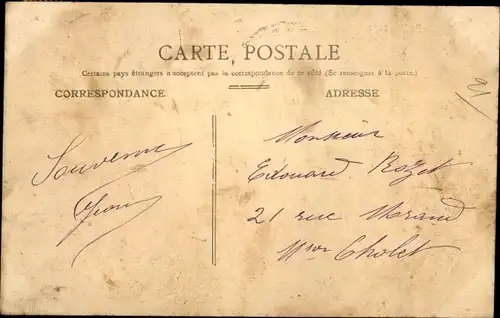 CARTE POSTALE
Certains pays étrangers n'acceptent pas la correspondance de ce côté (Se renseigner à la poste.)
CORRESPONDANCE
ADRESSE
Souvenir
Monsieur
Edouard Rozet
21 rue
Cholet